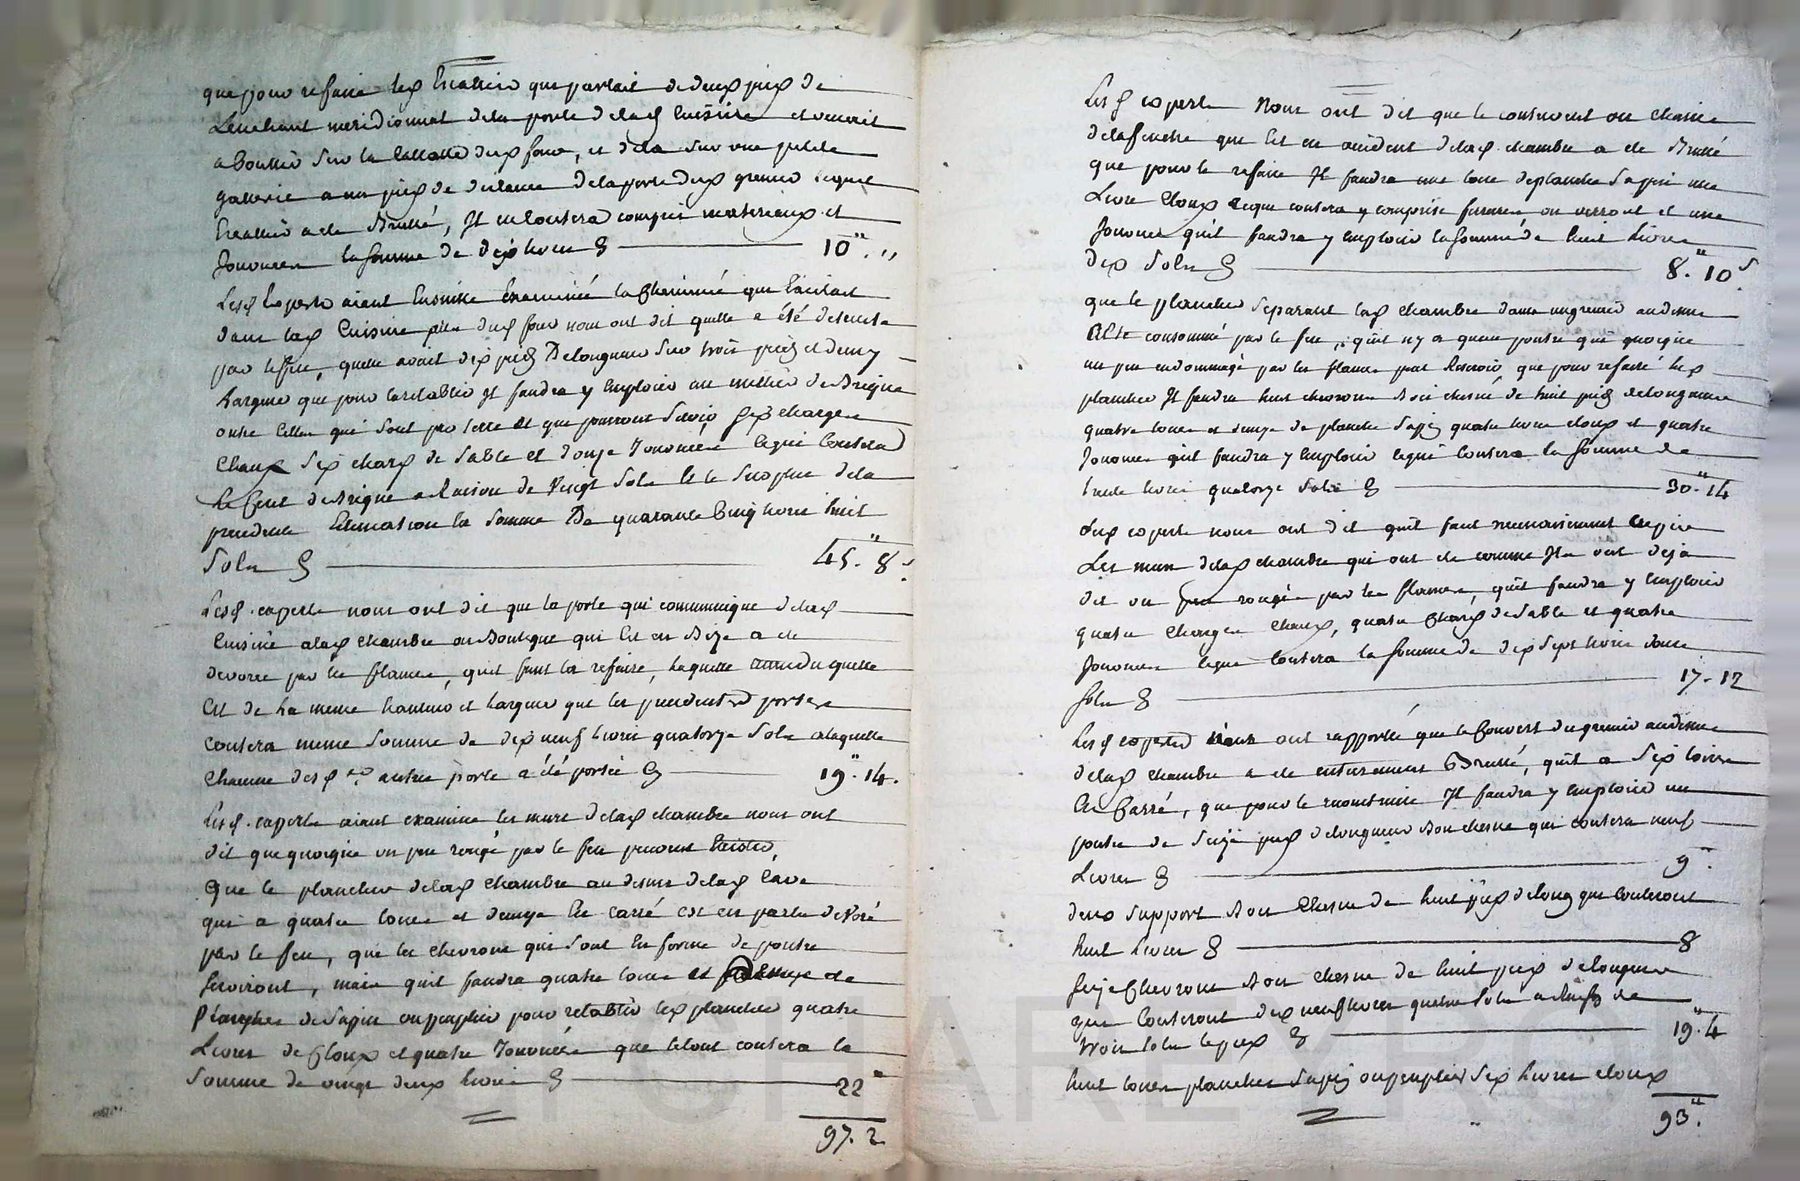 que pour refaire led. Escallier que partait de deux pieds de
Couchant meridionnal de la porte de lad. Cuisine et venait
aboutir sur la du. four, et de la sur une petite
gallerie a un pied de distance de la porte dud. grenier lequel
Escallier a ete Brulé, Il en Coutera compris materiaux et
Journées la somme de dix livres 10"."
Lesd. Experts aiant Ensuitte Examiné la Cheminée que Existait
dans lad. Cuisine dud. four nous ont dit quelle a été detruite
par le feu, quelle avait dix pieds De longueur sur trois pieds et demy
Largeur que pour la retablir Il faudra y Employer un millier de Brique
outre Celles qui sont par terre et que pourront Servir Six charges
Chaux Six chars de Sable et douze Journées le qui Coutera
Le Cent de Brique a Raison de Vingt Sols et le Surplus de la
presente Estimation la Somme De quarante Cinq livres huit
Sols 45."8 s.
Lesd. experts nous ont dit que la porte qui communique de lad.
Cuisine a lad. chambre ou Boutique qui Est en Bize a ete
devorée par les flames, quil faut la refaire, laquelle attendu quelle
Est de la meme hauteur et largeur que les precedentes portes
Coutera meme Somme de dix neuf livres quatorze Sols a laquelle
Chacune desd. autres porte a été portée 19."14.
Lesd. experts aiant examine les murs de lad. chambre nous ont
dit que quoique un peu rougi par le feu peuvent Exister,
Que le plancher de lad. chambre au dessus de lad. Cave
qui a quatre toises et demye En carré est en partie devoré
par le feu, que les chevrons qui sont En forme de poutre
Serviront, mais quil faudra quatre toises et demye de
Planches de Sapin ou peuplier pour retablir led. plancher quatre
Livres de Cloux et quatre Journées que le tout coutera la
Somme de vingt deux livres 22"
97. 2
Lesd. experts Nous ont dit que le contrevent ou
de la fenetre que Est en occident de lad. chambre a ete Brulé
que pour le refaire Il faudra une toise de planches Sapin une
Livre Cloux Lequel coutera y comprise ferrures ou verrout et une
Journée qu'il faudra y Employer la somme de huit livres
dix Sols 8."10 s.
que le plancher Separant lad. chambre dans un grenier au dessus
a Ete consommé par le feu, quil ny a quun poutre qui quoique
un peu endommagé par les flames peut Servir que pour refaire led.
plancher Il faudra huit chevrons Bois chesne de huit pieds de longueur
quatre toises et demye de planche Sapin quatre livres cloux et quatre
Journées quil faudra y Employer le qui Coutera la Somme de
trente livres quatorze Sols 30."14
Lesd. experts nous ont dit quil faut necessairement
Les murs de lad. chambre qui ont ete comme Ils ont deja
dit un peu rougis par les flames, quil faudra y Employer
quatre Charges Chaux, quatre Chars de Sable et quatre
Journées lequel Coutera la somme de dix Sept livres douze
Sols 17.-12
Lesd. experts Nous ont rapporté que le Couvert du grenier au dessus
de lad. chambre a ete entierement Brulé, quil a Six toises
En Carré, que pour le reconstruire Il faudra y Employer un
poutre de Seize pieds de longueur Bois chesne qui Coutera neuf
Livres 9"
deux Support Bois Chesne de huit pieds de long que Couteront
huit livres 8
Seize Chevrons Bois Chesne de huit pieds de longueur
que Couteront dix neuf livres quatre Sols a raison de
trois Sols le pied 19."4
huit toises planches Sapin ou peuplier Six livres cloux
93."